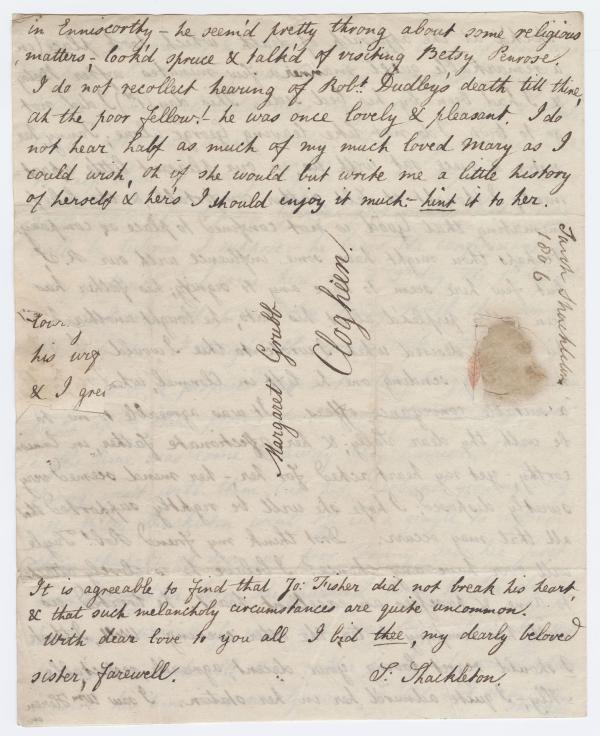 in Enniscorthy – he seem'd pretty throng about some religious
matters, look'd spruce & talk'd of visiting Betsy Penrose.
I do not recollect hearing of Robt. Dudley's death till thine,
ah the poor fellow! – he was once lovely & pleasant. I do
not hear half as much of my much loved Mary as I
could wish, oh if she would but write me a little history
of herself & her's I should enjoy it much – hint it to her.
Margaret Grubb
Clogheen.
Sarah Shackleton
1806
his
& I
It is agreeable to find that Jo: Fisher did not break his heart,
& that such melancholy circumstances are quite uncommon.
With dear love to you all I bid thee, my dearly beloved
sister, farewell. S: Shackleton.